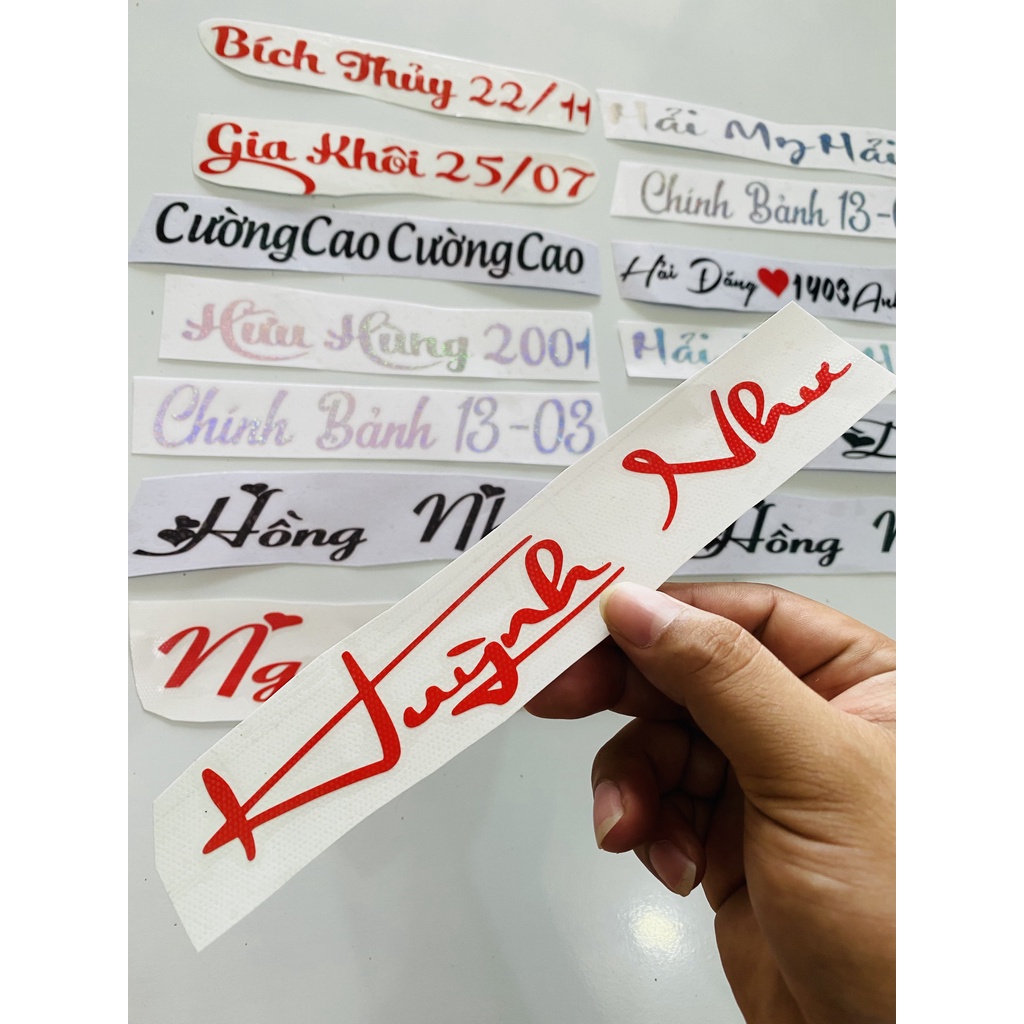 Bích Thủy 22/11
Gia Khôi 25/07
CườngCao CườngCao
Hữu Hùng 2001
Chính Bảnh 13-03
Hồng
Hải My Hải
Chính Bảnh 13-
Hải Đăng ❤ 1403 Anh
Hải
Hồng
Huỳnh Như